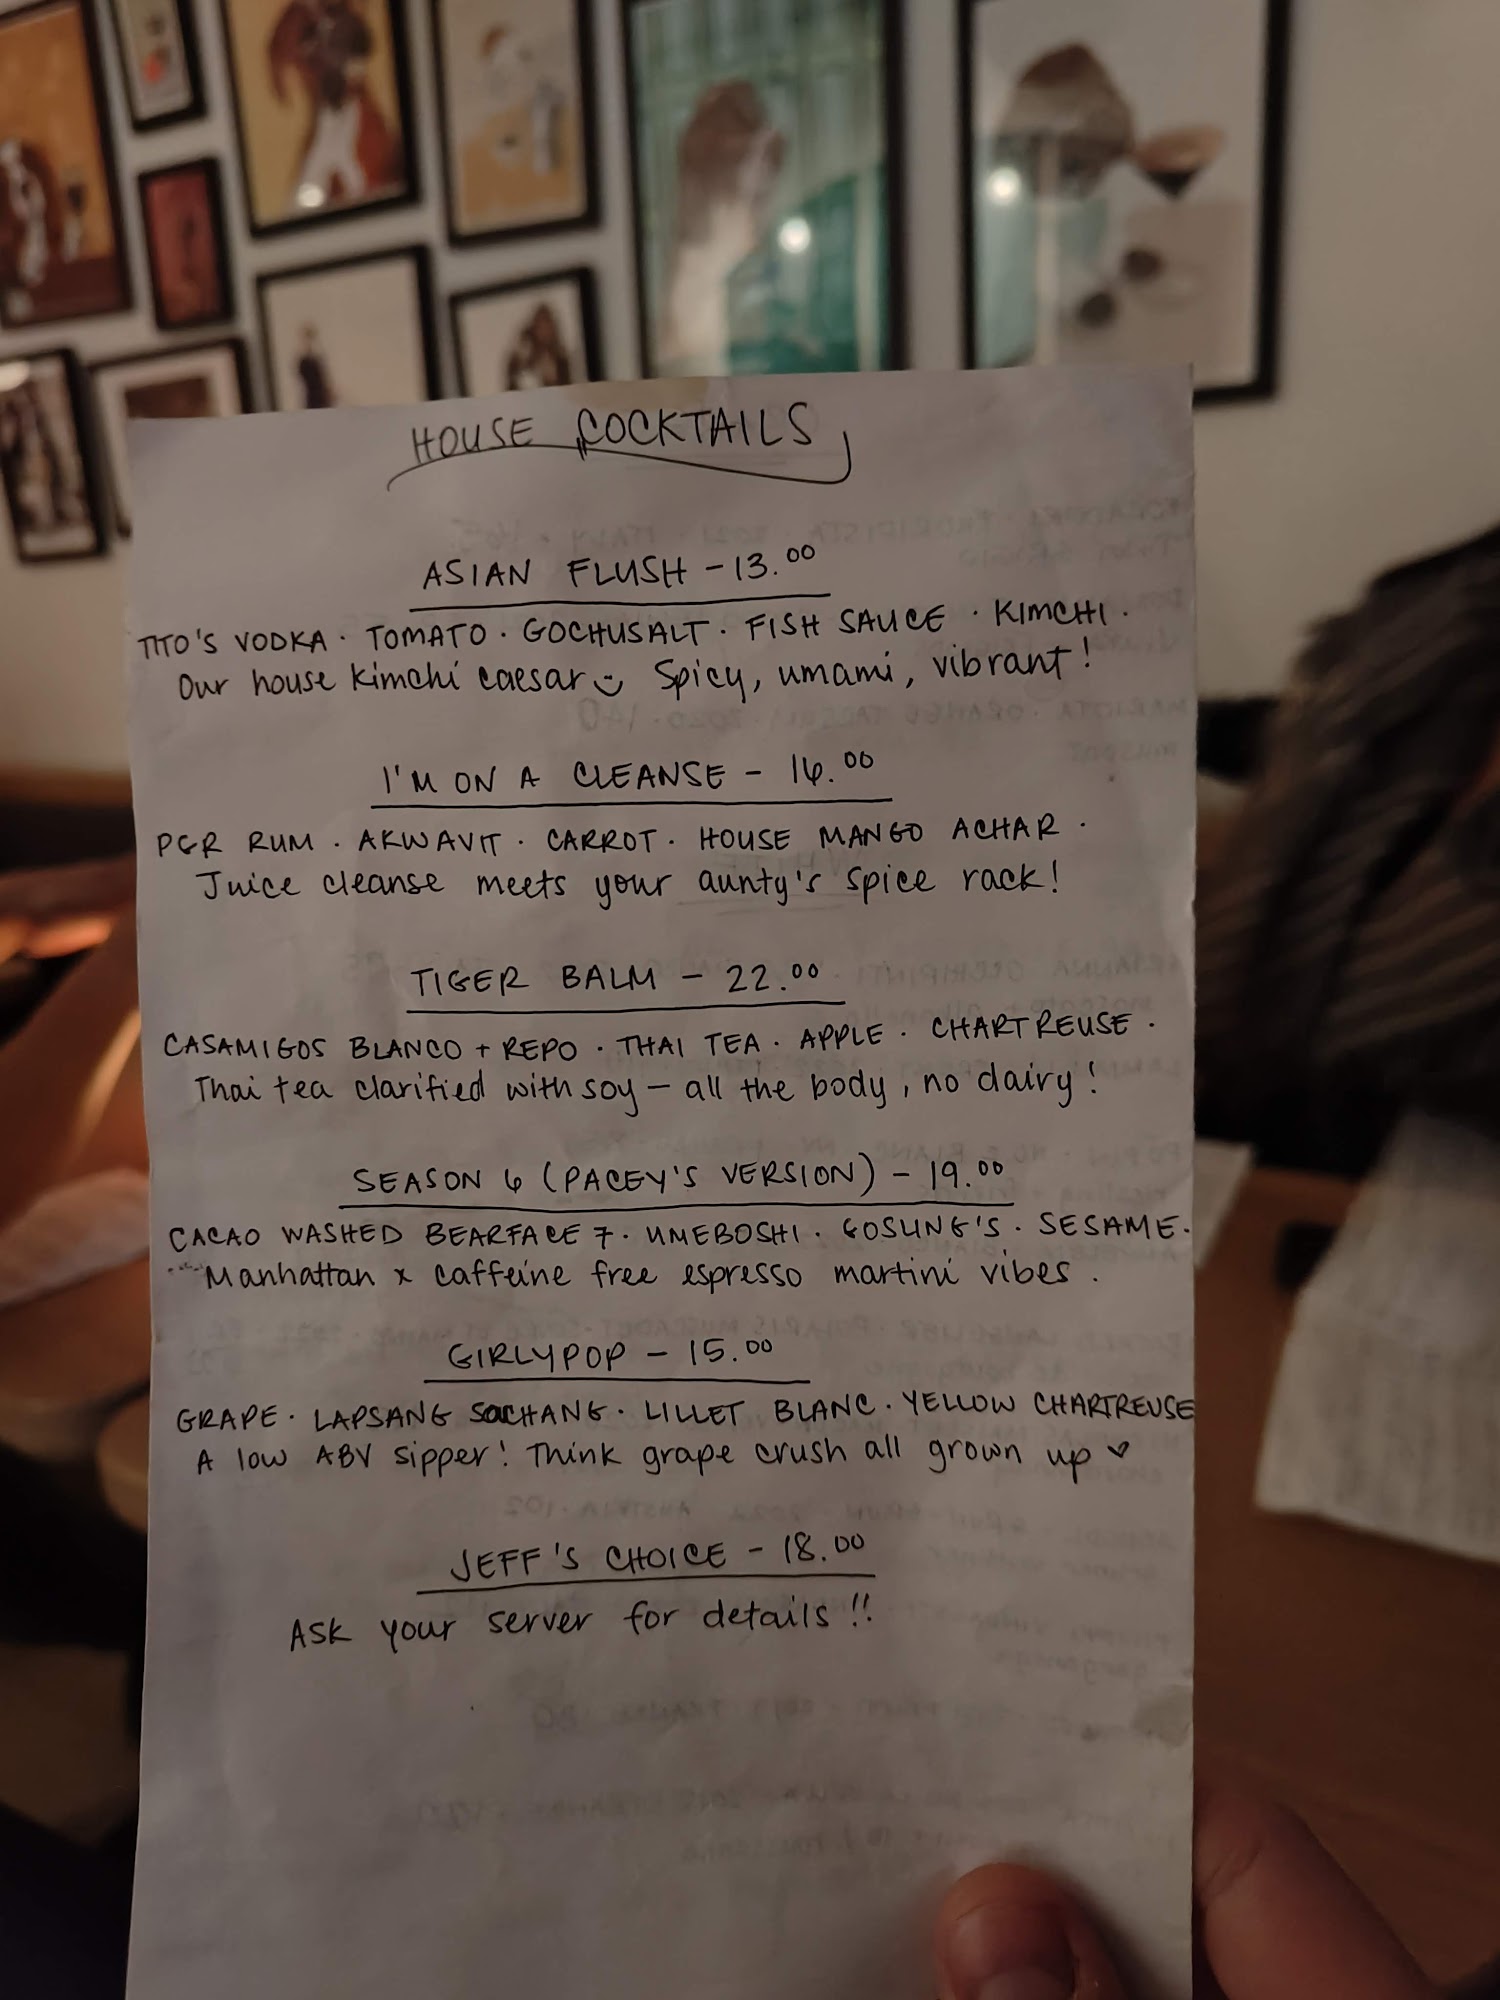 HOUSE COCKTAILS
ASIAN FLUSH - 13.00
TITO'S VODKA · TOMATO · GOCHUSALT · FISH SAUCE · KIMCHI ·
Our house kimchi caesar Spicy, umami, vibrant!
I'M ON A CLEANSE - 16.00
PGR RUM · AKWAVIT · CARROT · HOUSE MANGO ACHAR ·
Juice cleanse meets your aunty's spice rack!
TIGER BALM - 22.00
CASAMIGOS BLANCO + REPO · THAI TEA · APPLE · CHARTREUSE ·
Thai tea clarified with soy - all the body, no dairy!
SEASON 6 (PACEY'S VERSION) - 19.00
CACAO WASHED BEARFACE 7 · UMEBOSHI · GOSLING'S · SESAME ·
Manhattan x caffeine free espresso martini vibes.
GIRLYPOP - 15.00
GRAPE · LAPSANG SOCHANG · LILLET BLANC · YELLOW CHARTREUSE
A low ABV sipper! Think grape crush all grown up ♥
JEFF'S CHOICE - 18.00
Ask your server for details!!